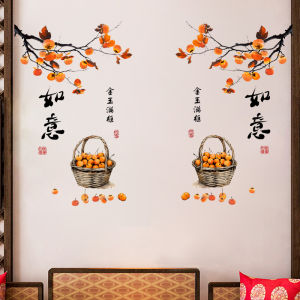 如意
金玉满堂
金玉满堂
如意